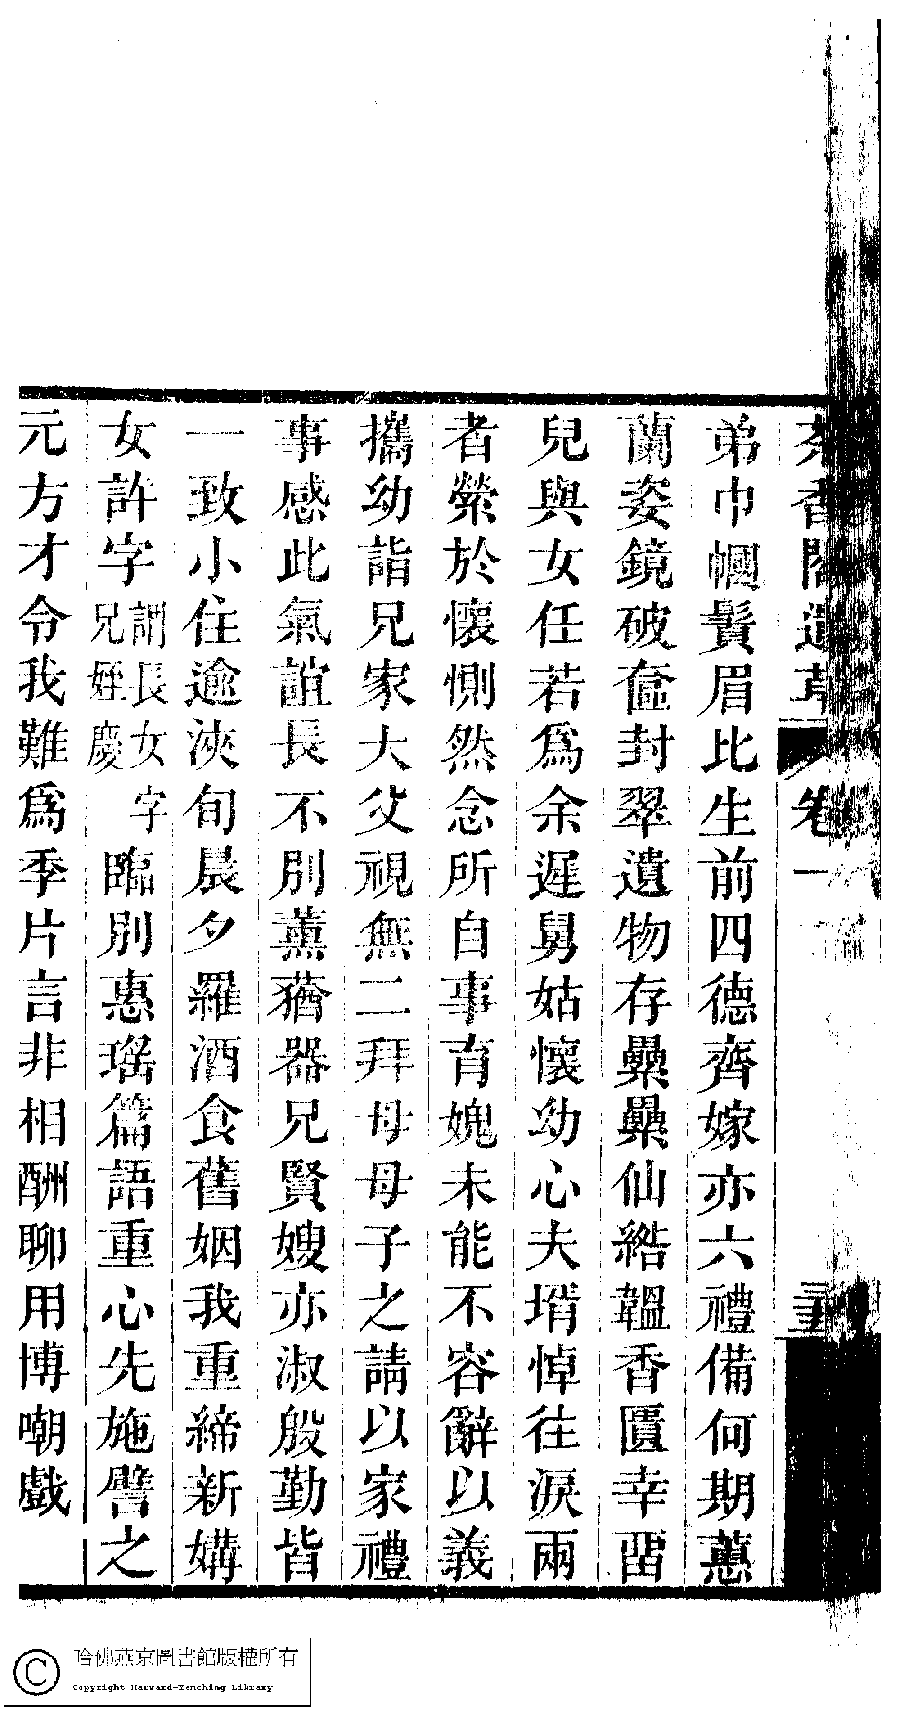 茶香閣遺草 卷一
弟巾幗鬢眉比生前四德齊嫁亦六禮備何期蕙
蘭姿鏡破奩封翠遺物存纍纍仙綹韞香匱幸留
兒與女任若爲余遲舅姑懷幼心夫壻悼往淚兩
者縈於懷惻然念所自事育媿未能不容辭以義
攜幼詣兄家大父視無二拜母母子之請以家禮
事感此氣誼長不別薰蕕器兄賢嫂亦淑殷勤皆
一致小住逾浹旬晨夕羅酒食舊姻我重締新媾
女許字謂長女字兄姪慶臨別惠瑤篇語重心先施譬之
元方才令我難爲季片言非相酬聊用博嘲戲
哈佛燕京圖書館版權所有
Copyright Harvard-Yenching Library